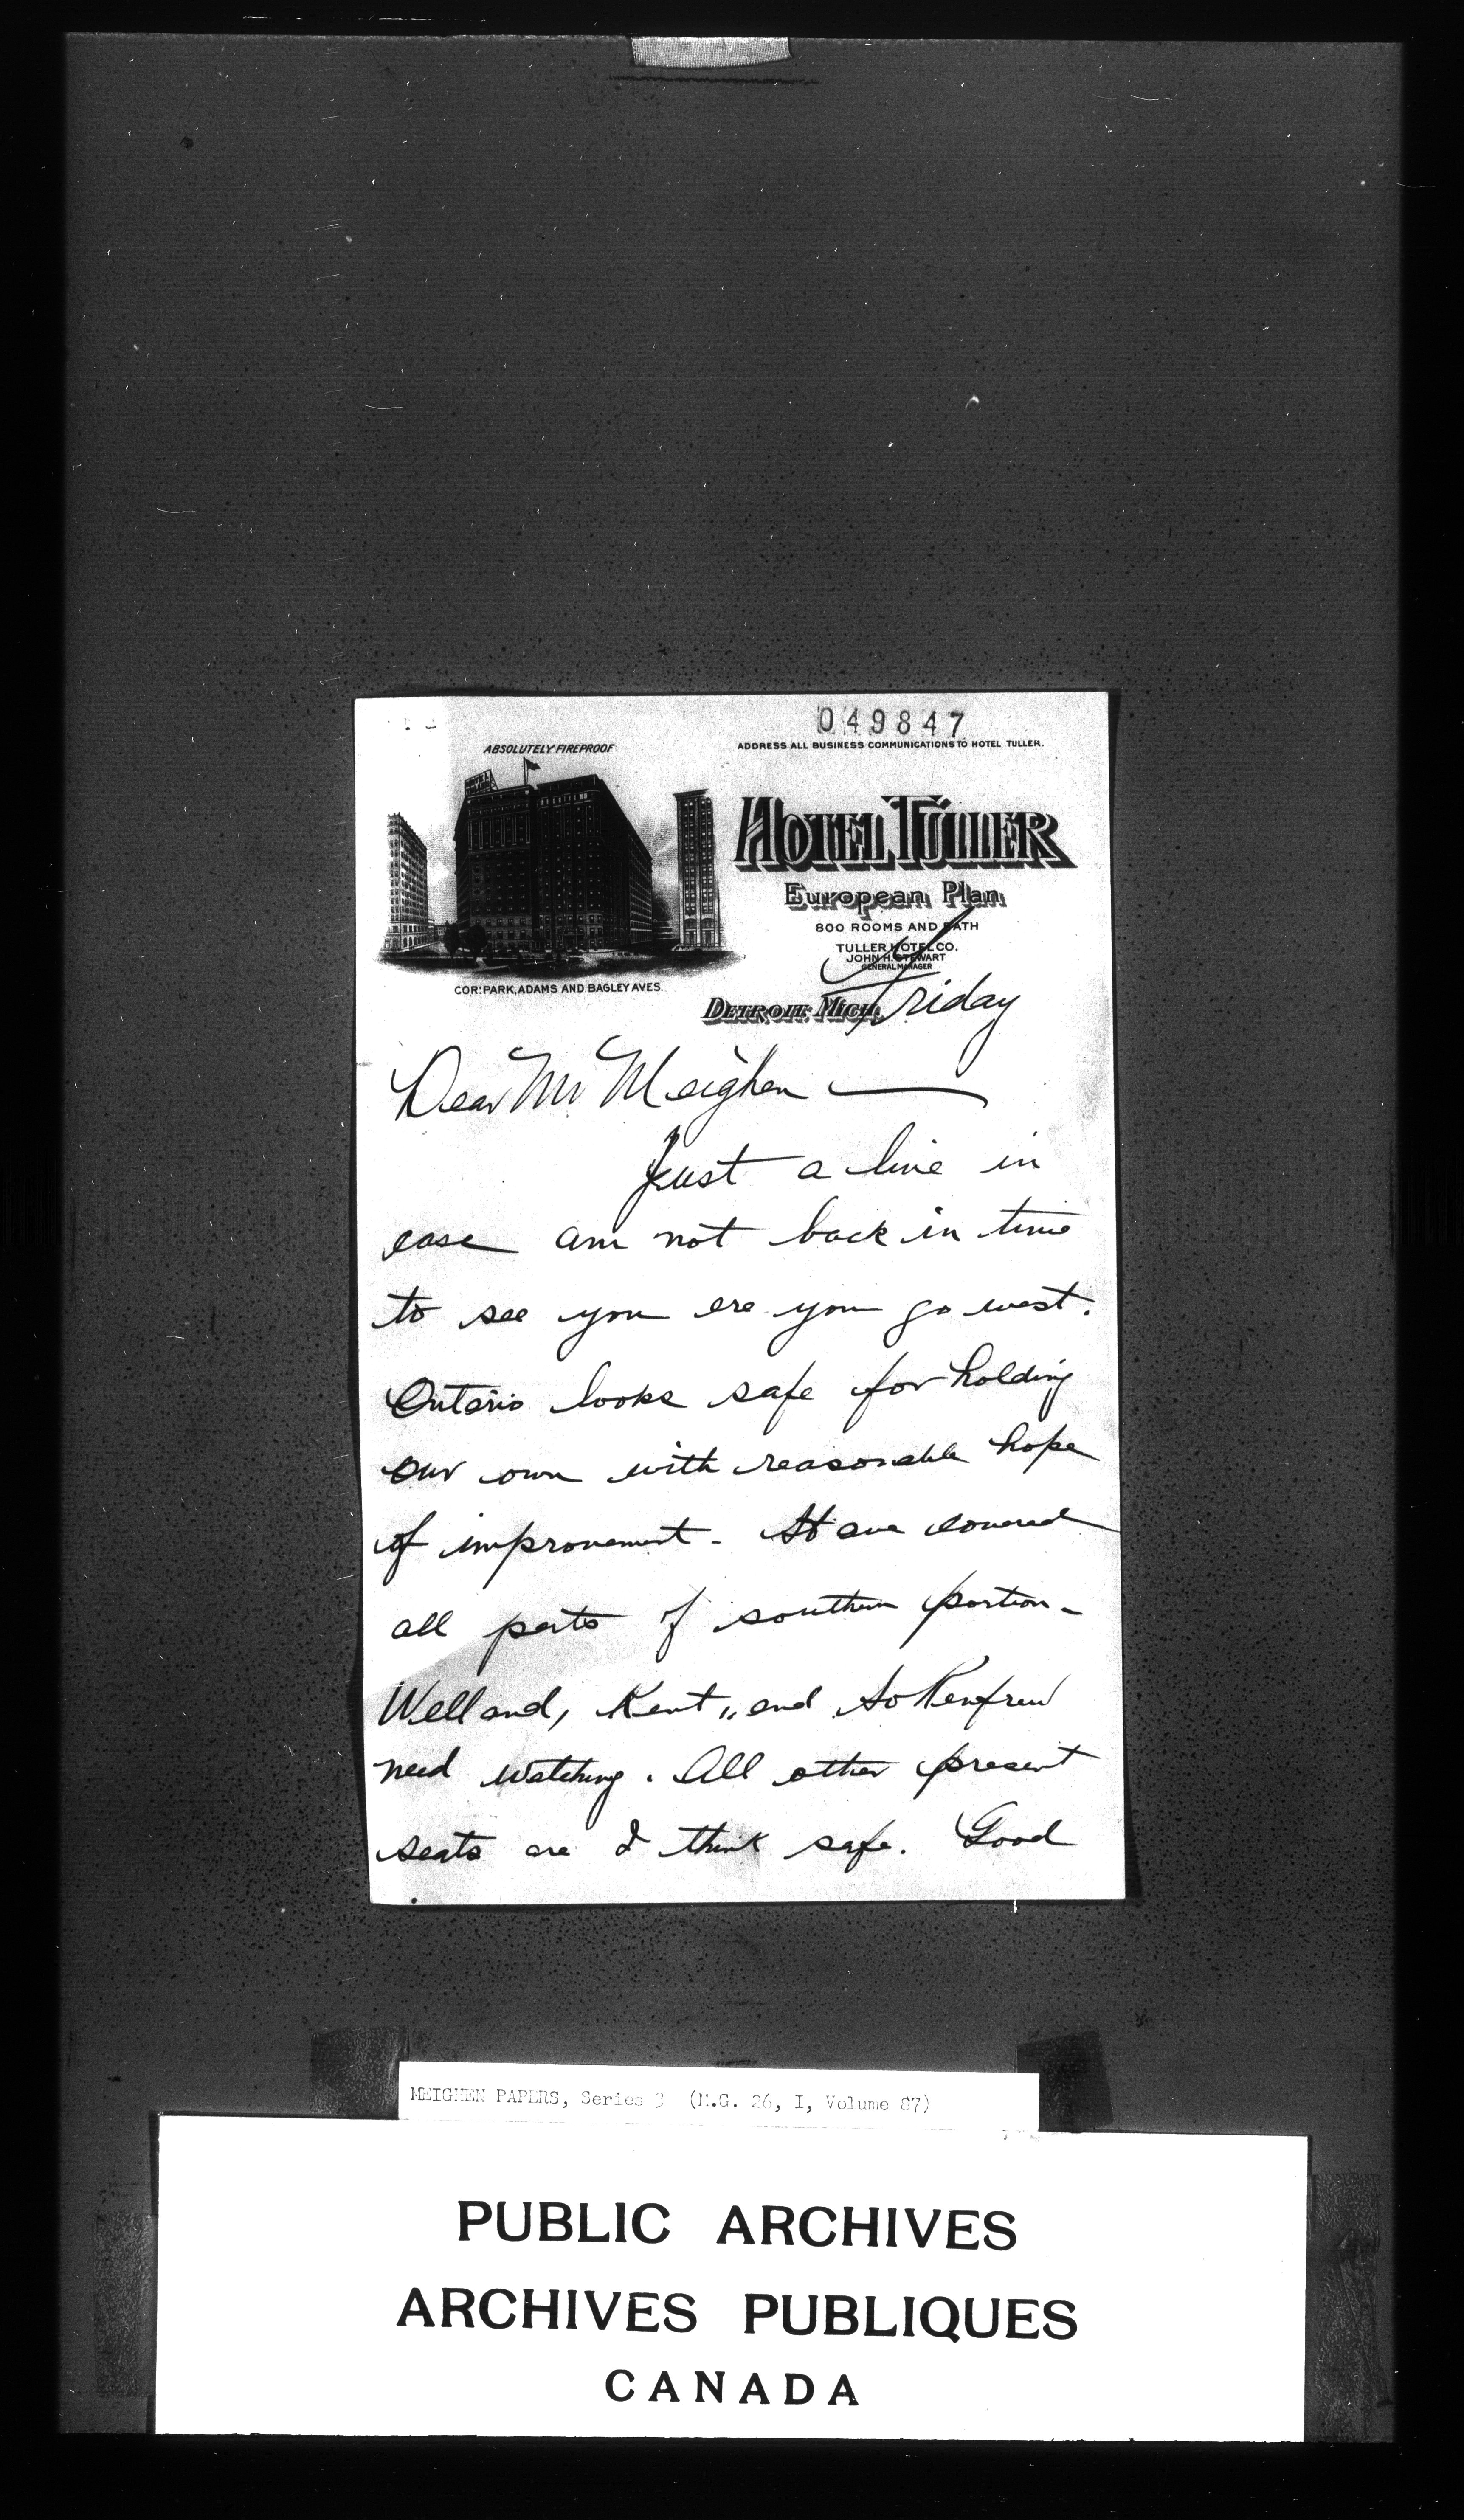 049847
ABSOLUTELY FIREPROOF
ADDRESS ALL BUSINESS COMMUNICATIONS TO HOTEL TULLER.
HOTEL TULLER
European Plan
800 ROOMS AND BATH
TULLER HOTEL CO.
JOHN H. STEWART
GENERAL MANAGER
COR: PARK, ADAMS AND BAGLEY AVES.
DETROIT, MICH. Friday
Dear Mr Meighen —
Just a line in
case am not back in time
to see you ere you go west.
Ontario looks safe for holding
our own with reasonable hope
of improvement. Have covered
all parts of southern portion -
Welland, Kent, and So Renfrew
need watching. All other present
seats are I think safe. Good
MEIGHEN PAPERS, Series 3 (M.G. 26, I, Volume 87)
PUBLIC ARCHIVES
ARCHIVES PUBLIQUES
CANADA